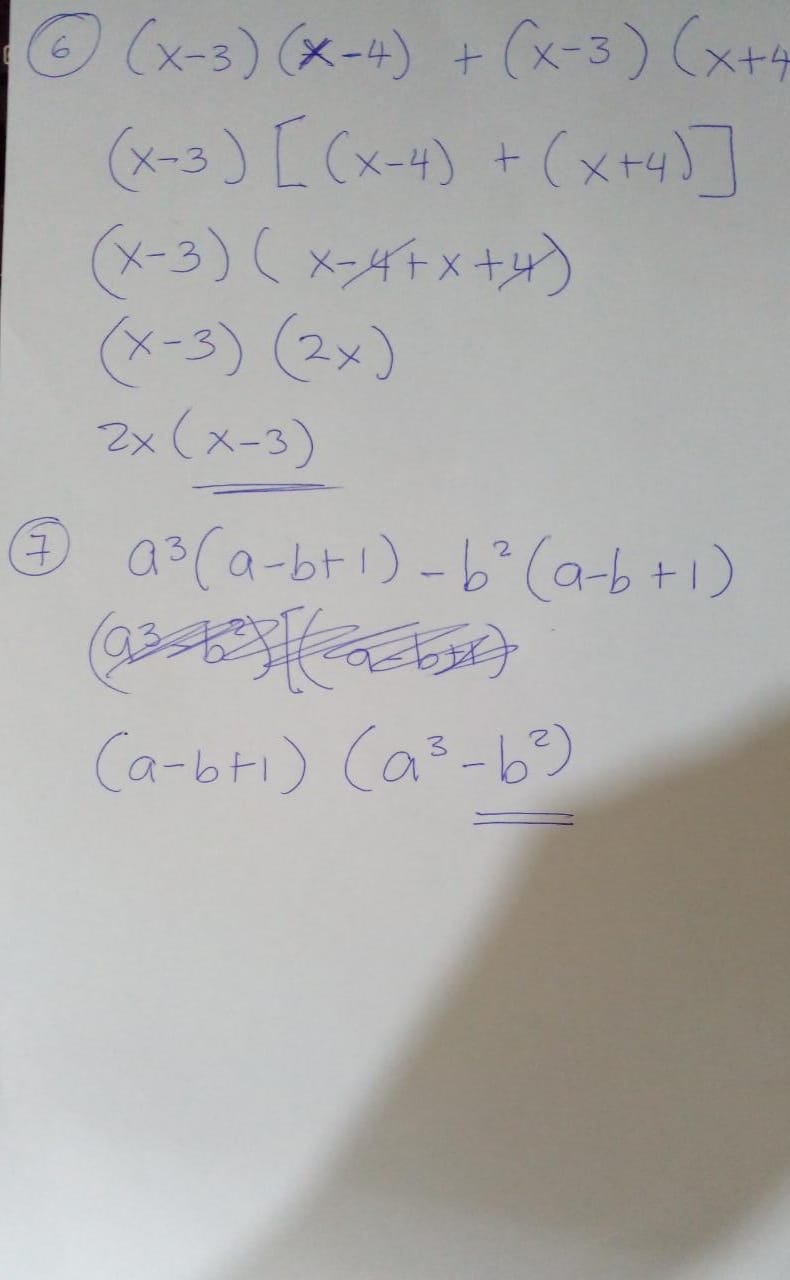 ⑥ (x-3)(x-4) + (x-3)(x+4
(x-3)[(x-4) + (x+4)]
(x-3)(x-4+x+4)
(x-3)(2x)
2x(x-3)
⑦ a³(a-b+1) - b²(a-b+1)
(a³-b²)[(a-b+1)
(a-b+1)(a³-b²)